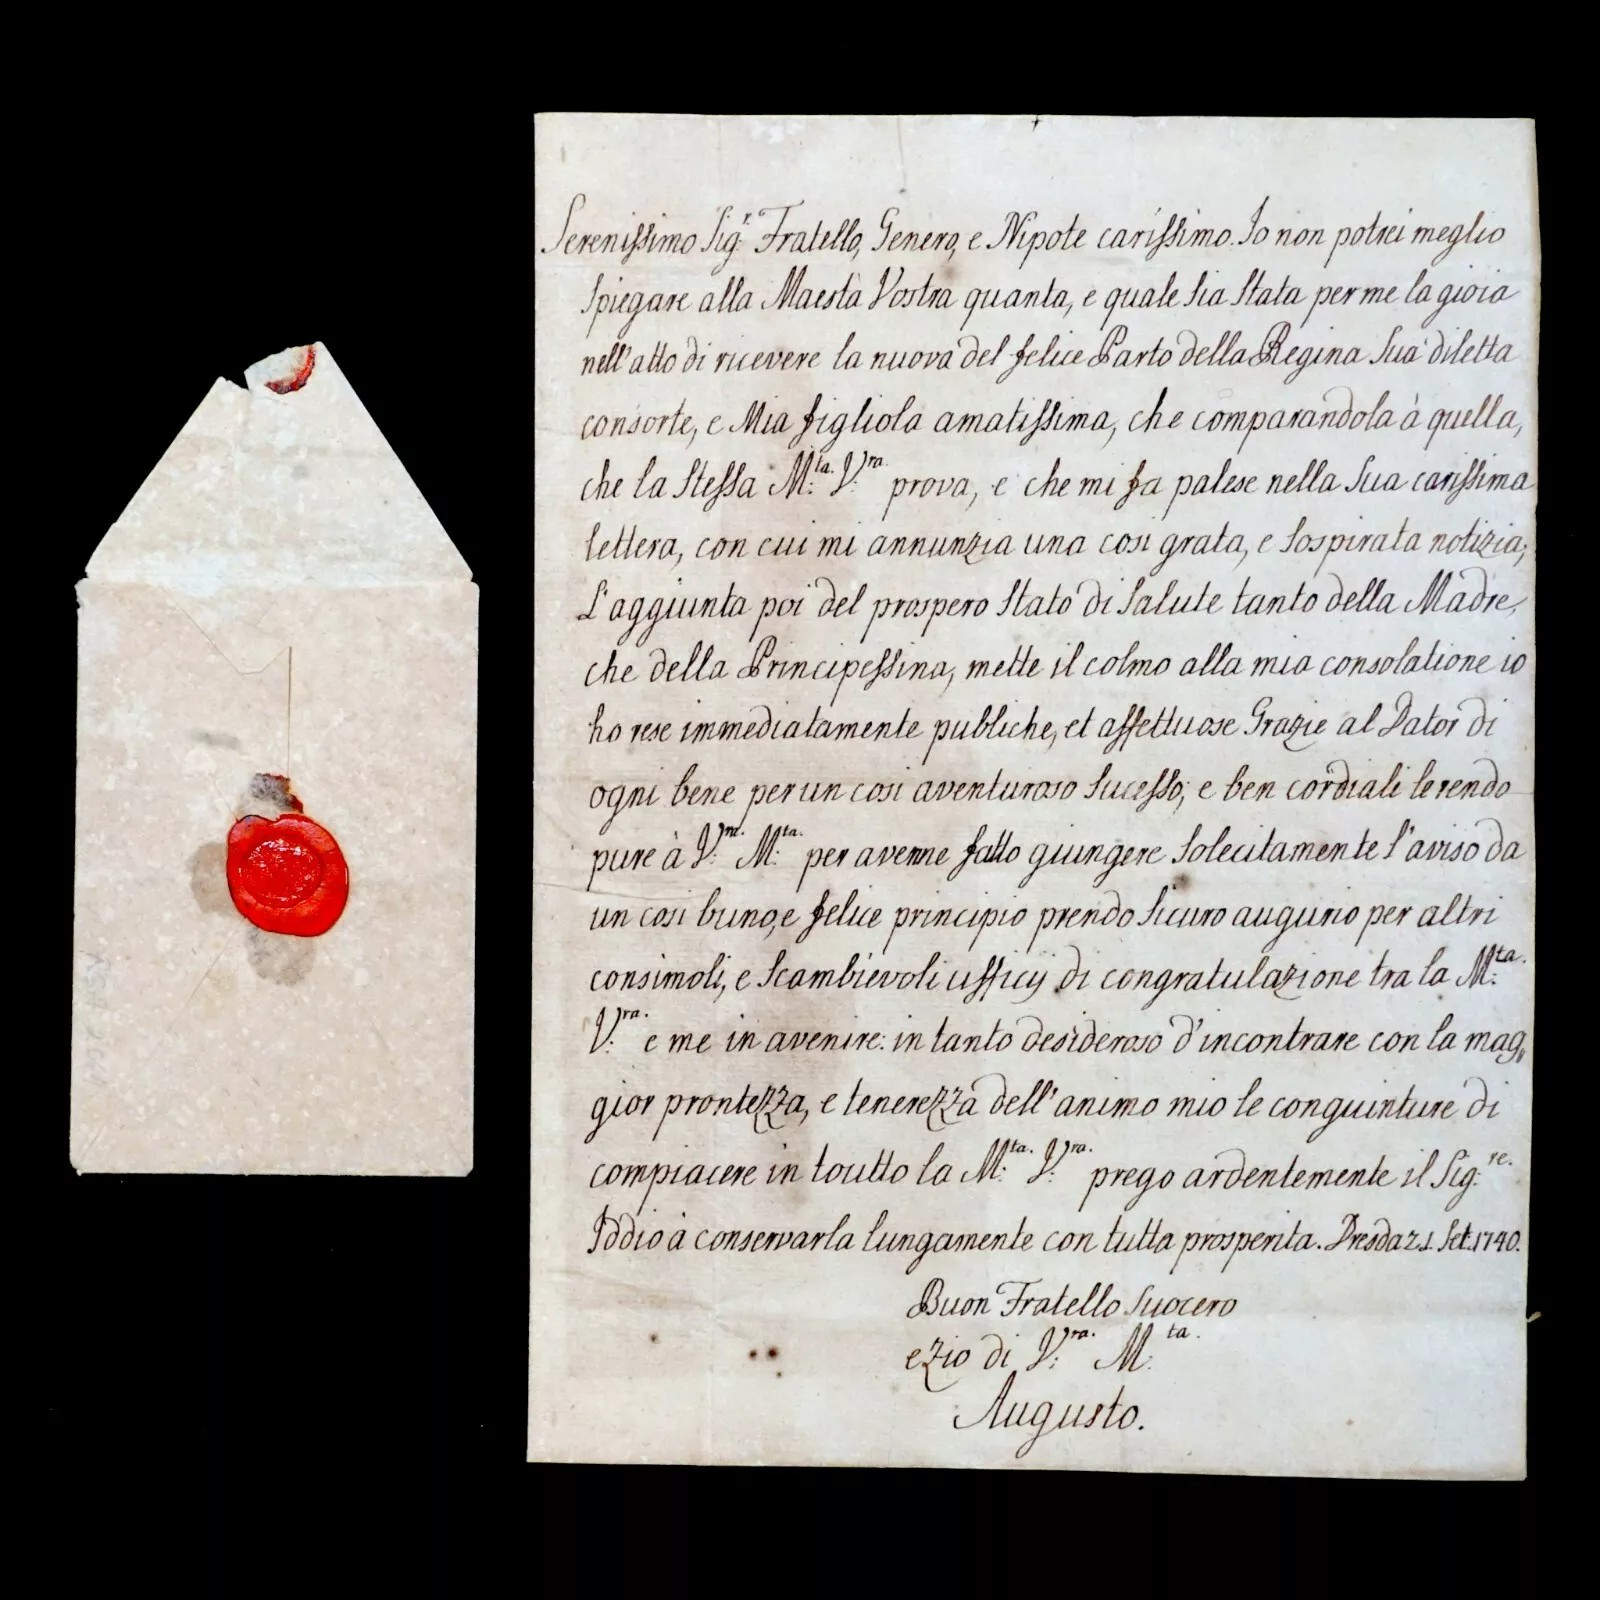 Serenissimo Sig.r Fratello, Genero, e Nipote carissimo. Io non potrei meglio
spiegare alla Maestà Vostra quanta, e quale sia stata per me la gioia
nell'atto di ricevere la nuova del felice Parto della Regina sua diletta
consorte, e Mia figliola amatissima, che comparandola à quella,
che la stessa M.ta V.ra prova, e che mi fa palese nella sua carissima
lettera, con cui mi annunzia una cosi grata, e sospirata notizia;
L'aggiunta poi del prospero stato di salute tanto della Madre,
che della Principessina, mette il colmo alla mia consolatione io
ho rese immediatamente publiche, et affettuose Grazie al Dator di
ogni bene per un cosi aventuroso sucesso; e ben cordiali le rendo
pure à V.ra M.ta per averne fatto giungere solecitamente l'aviso da
un cosi buno, e felice principio prendo sicuro augurio per altri
consimoli, e scambievoli ufficij di congratulazione tra la M.ta
V.ra e me in avenire: in tanto desideroso d'incontrare con la mag,
gior prontezza, e tenerezza dell'animo mio le conguinture di
compiacere in toutto la M.ta V.ra prego ardentemente il Sig.re
Iddio à conservarla lungamente con tutta prosperita. Dresda 21. Set. 1740.
Buon Fratello Suocero
ezio di V.ra M.ta
Augusto.